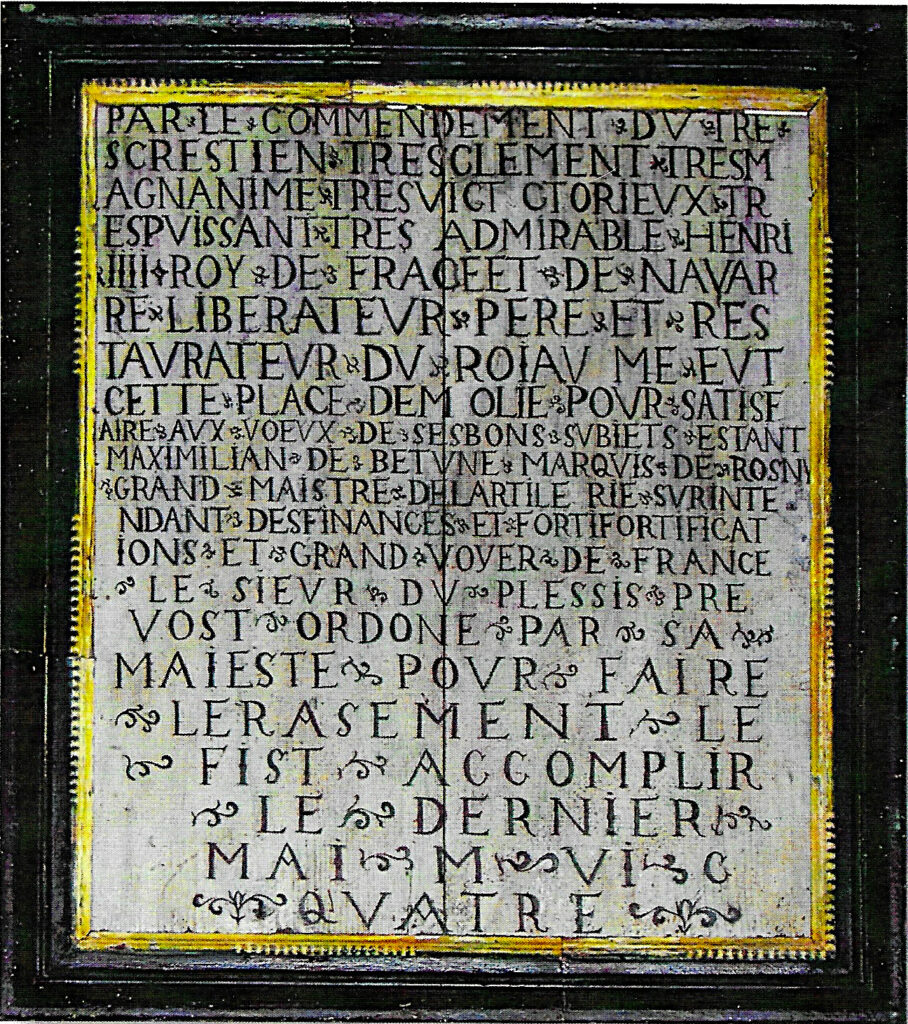 PAR LE COMMENDEMENT DV TRE
SCRESTIEN TRESCLEMENT TRESM
AGNANIME TRESVICT CTORIEVX TR
ESPVISSANT TRES ADMIRABLE HENRI
IIII ROY DE FRACEET DE NAVAR
RE LIBERATEVR PERE ET RES
TAVRATEVR DV ROIAV ME EVT
CETTE PLACE DEM OLIE POVR SATISF
AIRE AVX VOEVX DE SESBONS SVBIETS ESTANT
MAXIMILIAN DE BETVNE MARQVIS DE ROSNY
GRAND MAISTRE DELARTILE RIE SVRINTE
NDANT DESFINANCES ET FORTIFORTIFICAT
IONS ET GRAND VOYER DE FRANCE
LE SIEVR DV PLESSIS PRE
VOST ORDONE PAR SA
MAIESTE POVR FAIRE
LERASEMENT LE
FIST ACCOMPLIR
LE DERNIER
MAI M VI C
QVATRE